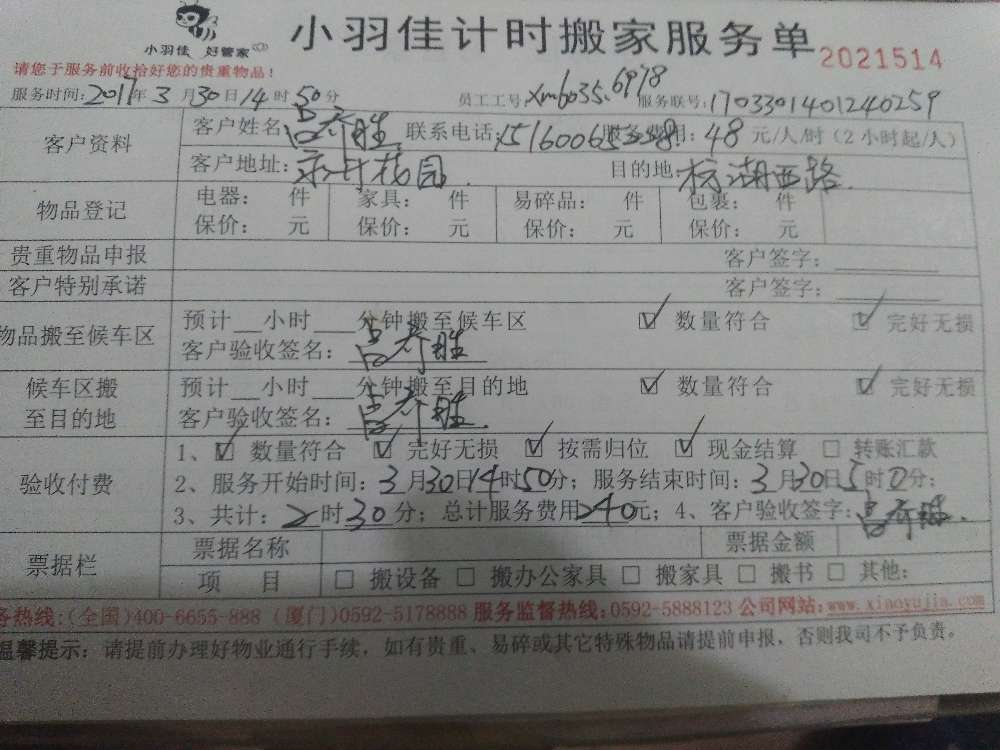 小羽佳 好管家
小羽佳计时搬家服务单
2021514
请您于服务前收拾好您的贵重物品!
服务时间:2017年3月30日14时50分 员工工号:xm6035.6978 服务联号:1703301401240259
客户资料
客户姓名: 联系电话: 用:48元/人/时(2小时起/人)
客户地址: 花园 目的地: 湖西路
物品登记
电器: 件 家具: 件 易碎品: 件 包裹: 件
保价: 元 保价: 元 保价: 元 保价: 元
贵重物品申报 客户签字:
客户特别承诺 客户签字:
物品搬至候车区
预计__小时___分钟搬至候车区 ☑ 数量符合 ☑ 完好无损
客户验收签名: 胜
候车区搬至目的地
预计__小时___分钟搬至目的地 ☑ 数量符合 ☑ 完好无损
客户验收签名: 胜
验收付费
1、☑ 数量符合 ☑ 完好无损 ☑ 按需归位 ☑ 现金结算 □ 转账汇款
2、服务开始时间:3月30日14时50分;服务结束时间:3月30日5时0分;
3、共计:2时30分;总计服务费用240元;4、客户验收签字:
票据栏
票据名称 票据金额
项 目 □ 搬设备 □ 搬办公家具 □ 搬家具 □ 搬书 □ 其他:
务热线:(全国)400-6655-888 (厦门)0592-5178888 服务监督热线:0592-5888123 公司网站:www.xiaoyujia.com
温馨提示:请提前办理好物业通行手续,如有贵重、易碎或其它特殊物品请提前申报,否则我司不予负责。